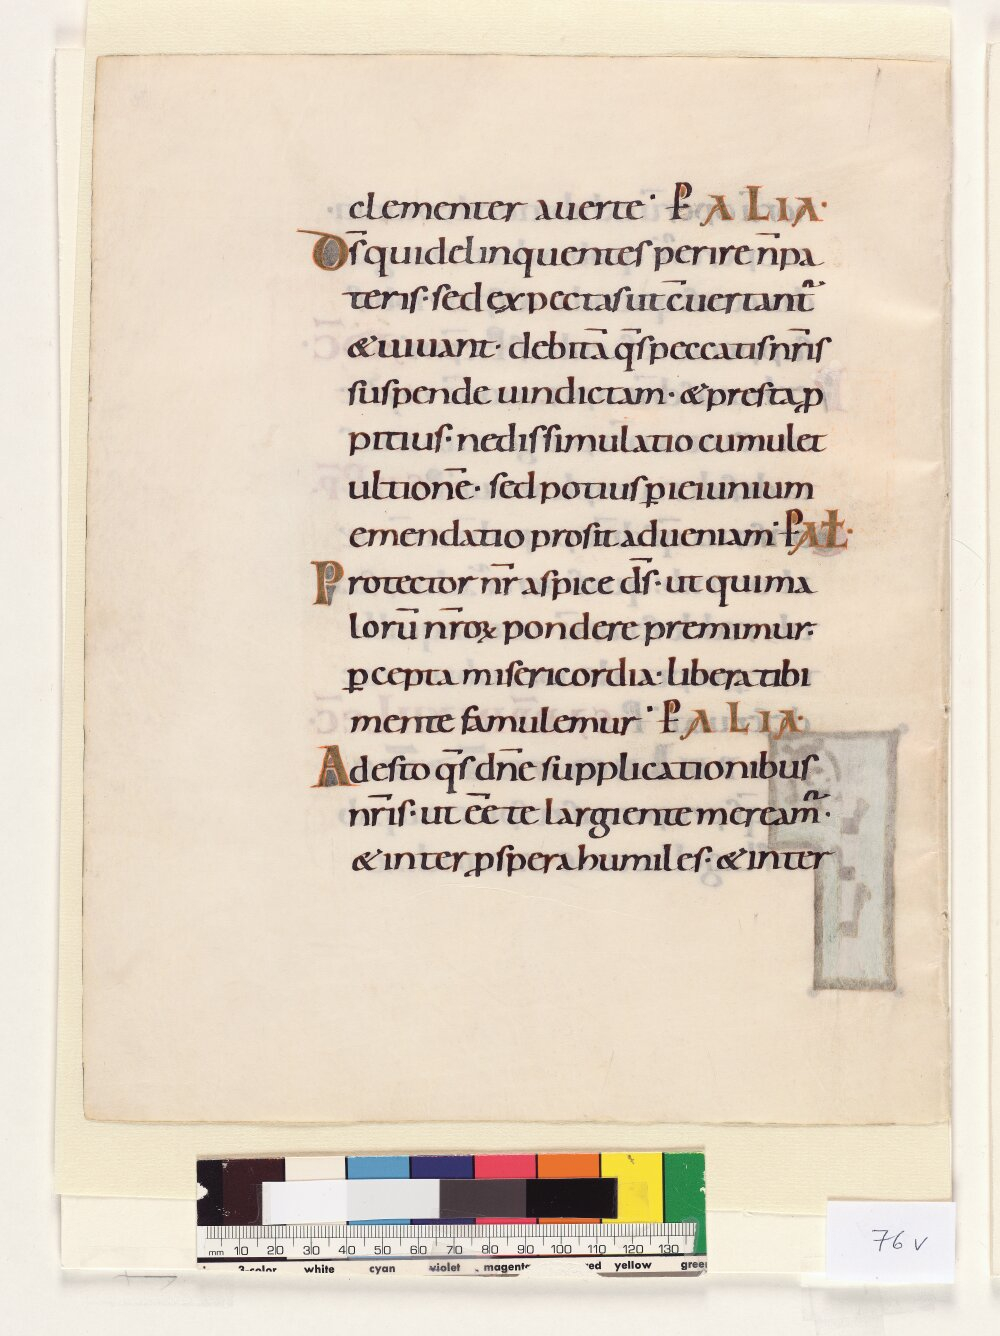 clementer auerte· ꝑ ALIA·
Ds̄ qui delinquentes perire n̄ pa
teris· sed expectas ut c̄uertant̃
& uiuant· debitā q̄s peccatis nr̄is
suspende uindictam· & presta ꝓ
pitius· ne dissimulatio cumulet
ultionē· sed potius ꝑ ieiunium
emendatio prosit ad ueniam· AŁ·
Protector nr̄ aspice ds̄· ut qui ma
lorū nr̄oꝝ pondere premimur·
ꝑcepta misericordia· libera tibi
mente famulemur· ꝑ ALIA·
Adesto q̄s dn̄e supplicationibus
nr̄is· ut eē te largiente meream̃·
& inter ꝓspera humiles· & inter
76 v
mm 10 20 30 40 50 60 70 80 90 100 110 120 130
3-color white cyan violet magenta red yellow green